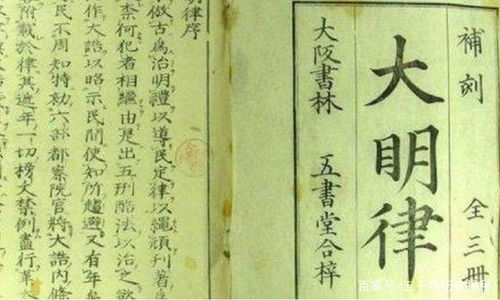 補刻
大明律
全三冊
大阪書林 五書堂合梓
明律序
倣古為治明禮以導民定律以繩頑刊著為
奈何犯者相繼由是出五刑酷法以治之欲
作大誥以昭示民間使知所趨避又有年
民不周知特勅六部都察院官將大誥內條
附載於律其遞年一切榜文禁例盡行革
百家号